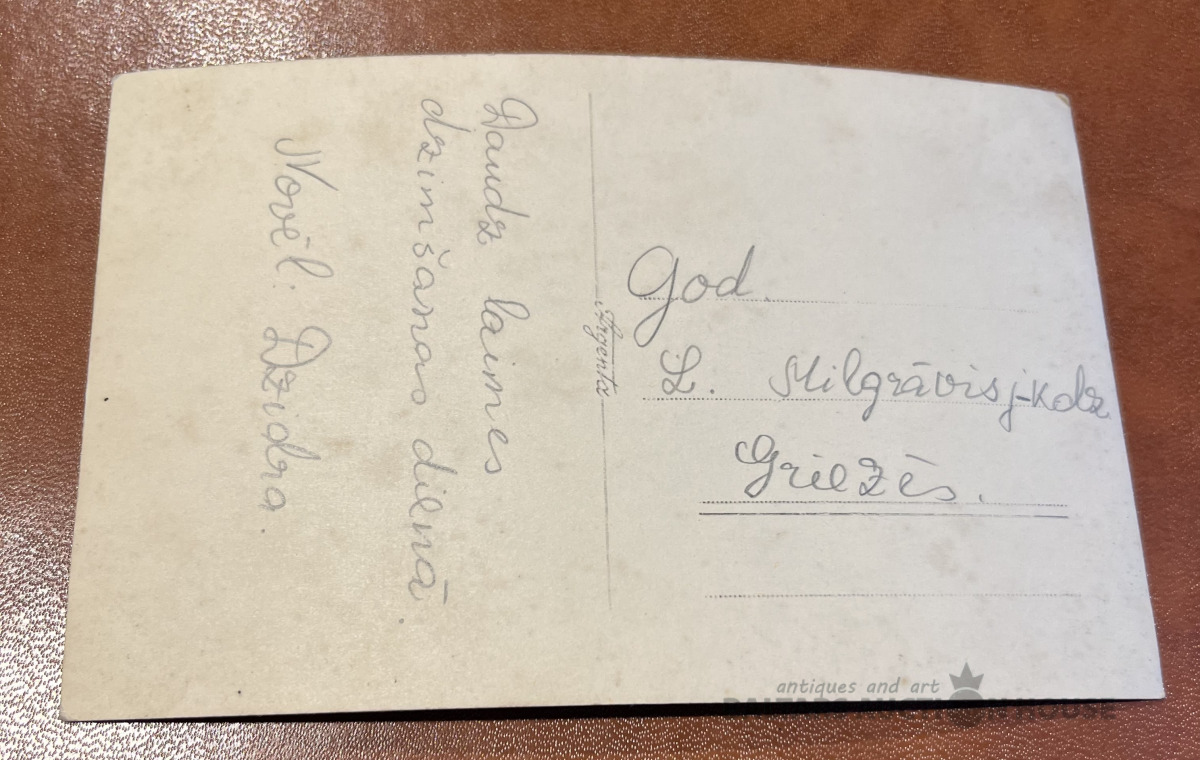 Daudz laimes
dzimšanas dienā
Novēl: Dzidra.
Argenta
God.
Milgrāvis j-kdz
Griezēs.
antiques and art